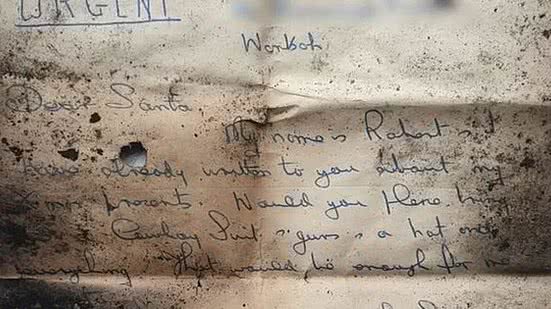 URGENT
Dear Santa
My name is Robert & I
have already written to you about my
Xmas presents. Would you please bring
Cowboy Suit & guns & a hat and
everything that would be enough for me